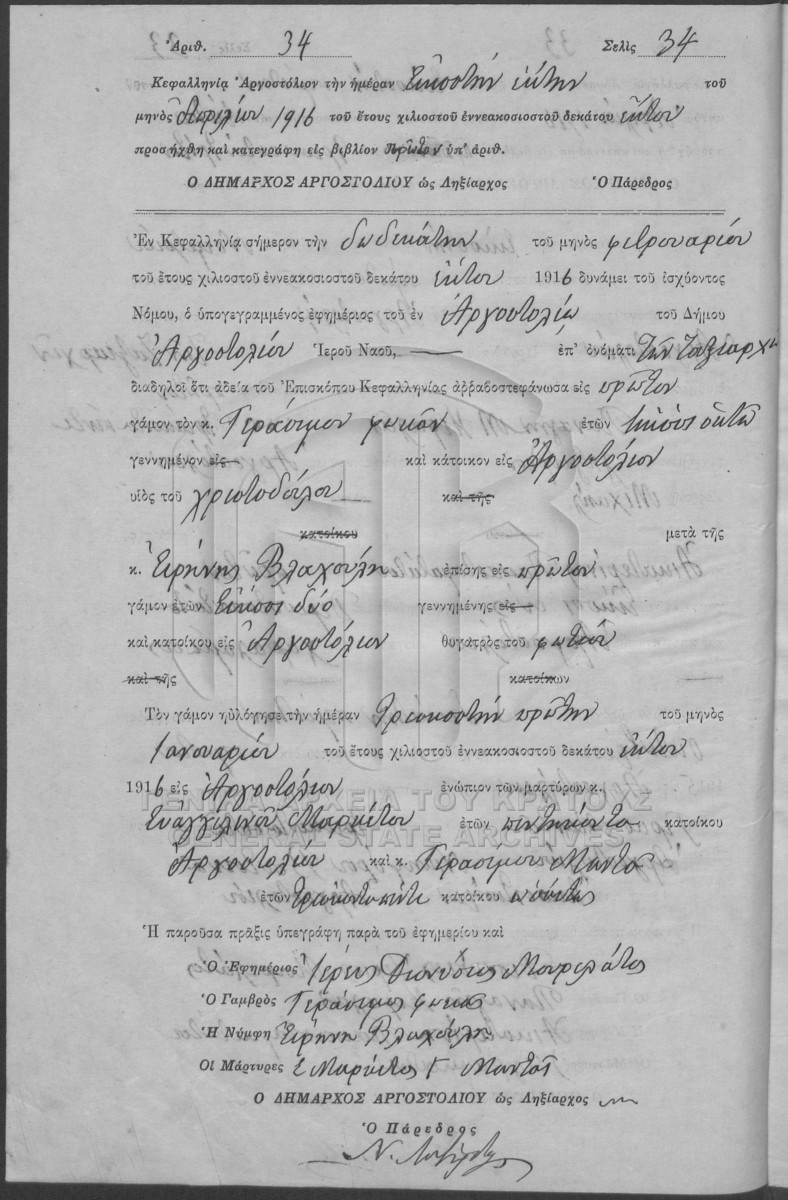 Ἀριθ. 34 Σελὶς 34
Κεφαλληνίᾳ Ἀργοστόλιον τὴν ἡμέραν Εἰκοστὴν ἕκτην τοῦ
μηνὸς Ἀπριλίου 1916 τοῦ ἔτους χιλιοστοῦ ἐννεακοσιοστοῦ δεκάτου ἕκτου
προσήχθη καὶ κατεγράφη εἰς βιβλίον πρῶτον ὑπ' ἀριθ.
Ο ΔΗΜΑΡΧΟΣ ΑΡΓΟΣΤΟΛΙΟΥ ὡς Ληξίαρχος Ὁ Πάρεδρος
Ἐν Κεφαλληνίᾳ σήμερον τὴν δωδεκάτην τοῦ μηνὸς φεβρουαρίου
τοῦ ἔτους χιλιοστοῦ ἐννεακοσιοστοῦ δεκάτου ἕκτου 1916 δυνάμει τοῦ ἰσχύοντος
Νόμου, ὁ ὑπογεγραμμένος ἐφημέριος τοῦ ἐν Ἀργοστολίῳ τοῦ Δήμου
Ἀργοστολίου Ἱεροῦ Ναοῦ, ἐπ' ὀνόματι Τῶν ταξιαρχῶ
διαδηλοῖ ὅτι ἀδείᾳ τοῦ Ἐπισκόπου Κεφαλληνίας ἀρραβοστεφάνωσα εἰς πρῶτον
γάμον τὸν κ. Γεράσιμον φωκᾶν ἐτῶν εἴκοσι ὀκτώ
γεννημένον εἰς καὶ κάτοικον εἰς Ἀργοστόλιον
υἱὸς τοῦ χριστοδούλου καὶ τῆς
κατοίκου μετὰ τῆς
κ. Εἰρήνης Βλαχούλη ἐπίσης εἰς πρῶτον
γάμον ἐτῶν Εἴκοσι δύο γεννημένης εἰς
καὶ κατοίκου εἰς Ἀργοστόλιον θυγατρὸς τοῦ φωτίου
καὶ τῆς κατοίκων
Τὸν γάμον ηὐλόγησε τὴν ἡμέραν Τριακοστὴν πρώτην τοῦ μηνὸς
Ιανουαρίου τοῦ ἔτους χιλιοστοῦ ἐννεακοσιοστοῦ δεκάτου ἕκτου
1916 εἰς Ἀργοστόλιον ἐνώπιον τῶν μαρτύρων κ.
ΓΕΝΙΚΑ ΑΡΧΕΙΑ ΤΟΥ ΚΡΑΤΟΥΣ
Ευαγγελινοῦ Μαρκέτου ἐτῶν πεντήκοντα κατοίκου
GENERAL STATE ARCHIVES
Ἀργοστολίου καὶ κ. Γερασίμου Μαντᾶ
ἐτῶν τριάκοντα πέντε κατοίκου
Ἡ παροῦσα πρᾶξις ὑπεγράφη παρὰ τοῦ ἐφημερίου καὶ
Ὁ Ἐφημέριος Ἱερεὺς Διονύσιος Μουρελάτος
Ὁ Γαμβρὸς Γεράσιμος φωκᾶς
Ἡ Νύμφη Εἰρήνη Βλαχούλη
Οἱ Μάρτυρες Ε Μαρκέτος Γ Μαντᾶς
Ο ΔΗΜΑΡΧΟΣ ΑΡΓΟΣΤΟΛΙΟΥ ὡς Ληξίαρχος
Ὁ Πάρεδρος